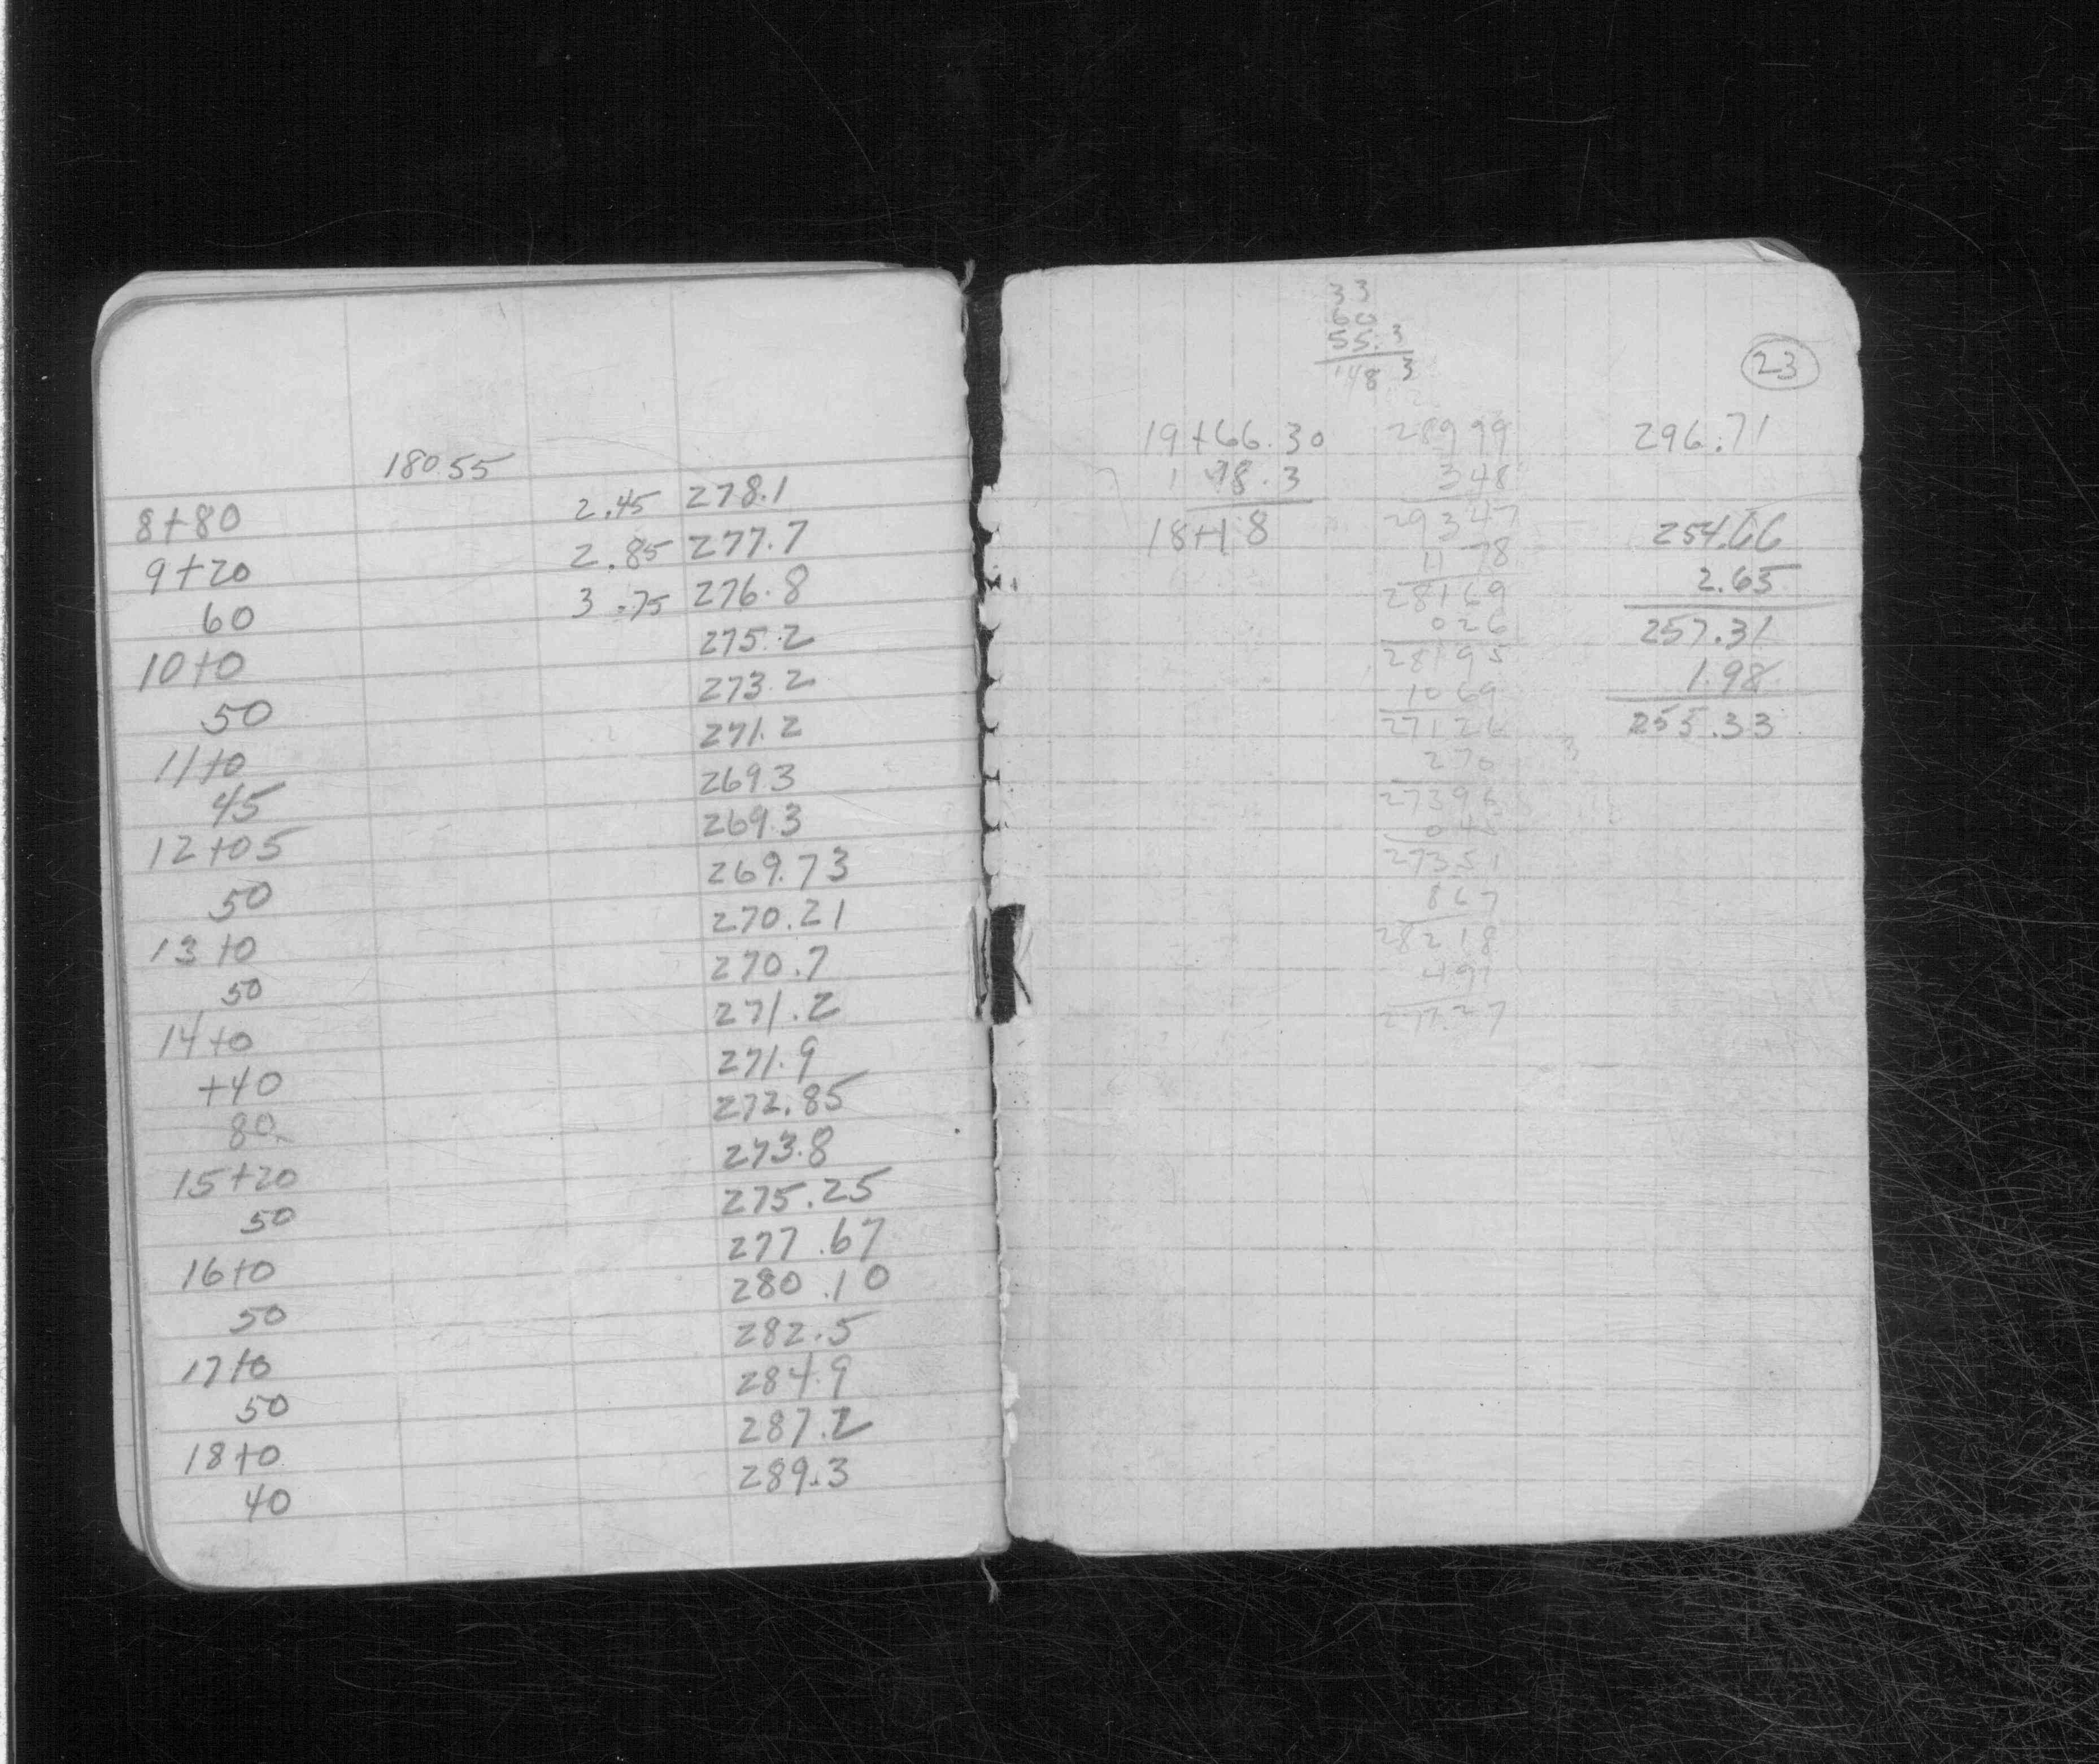 180.55
8+80 2.45 278.1
9+20 2.85 277.7
60 3.75 276.8
10+0 275.2
50 273.2
11+0 271.2
45 269.3
12+05 269.3
50 269.73
13+0 270.21
50 270.7
14+0 271.2
+40 271.9
80 272.85
15+20 273.8
50 275.25
16+0 277.67
50 280.10
17+0 282.5
50 284.9
18+0 287.2
40 289.3
33
60
55.3
148 3
23
19+66.30 28999 296.71
1 48.3 348
18+18 29347 254.66
1178 2.65
28169 257.31
026 1.98
28195 255.33
1069
27126
270
27396
045
27351
867
28218
491
277.27